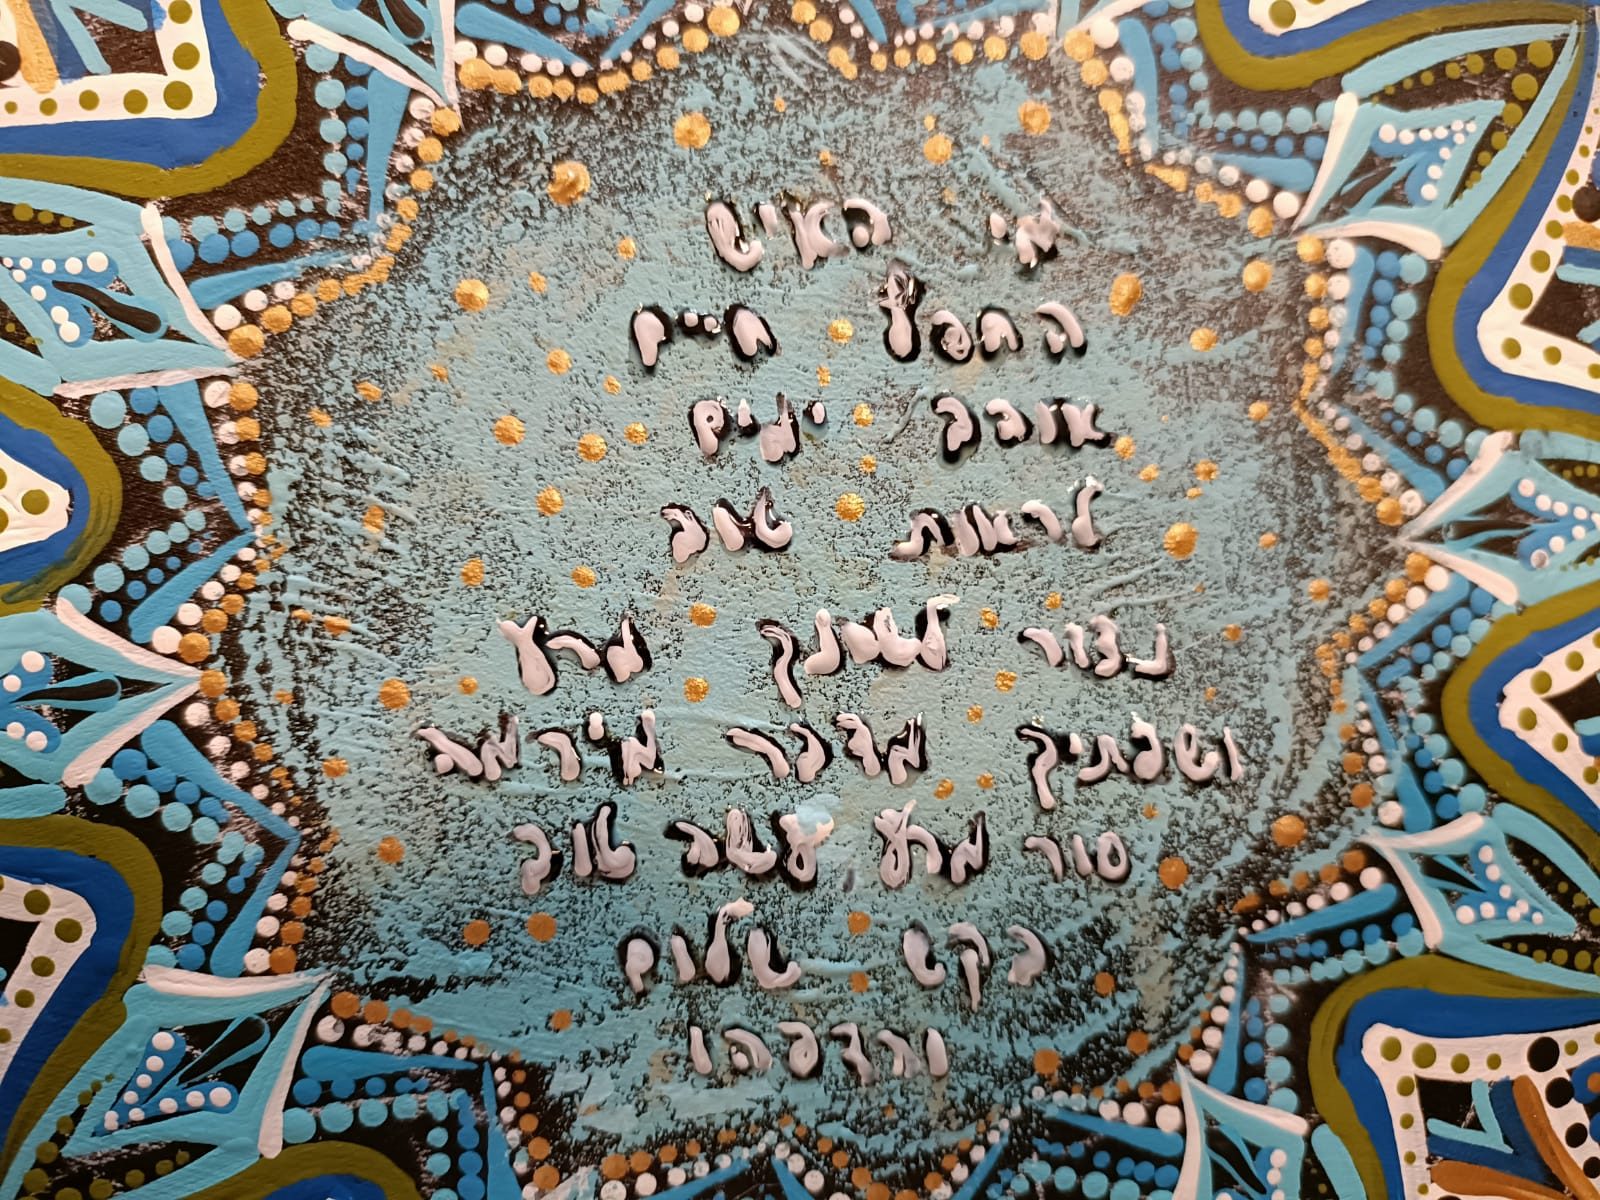 מי האיש
החפץ חיים
אוהב ימים
לראות טוב
נצור לשונך מרע
ושפתיך מדבר מירמה
סור מרע עשה טוב
בקש שלום
ורדפהו